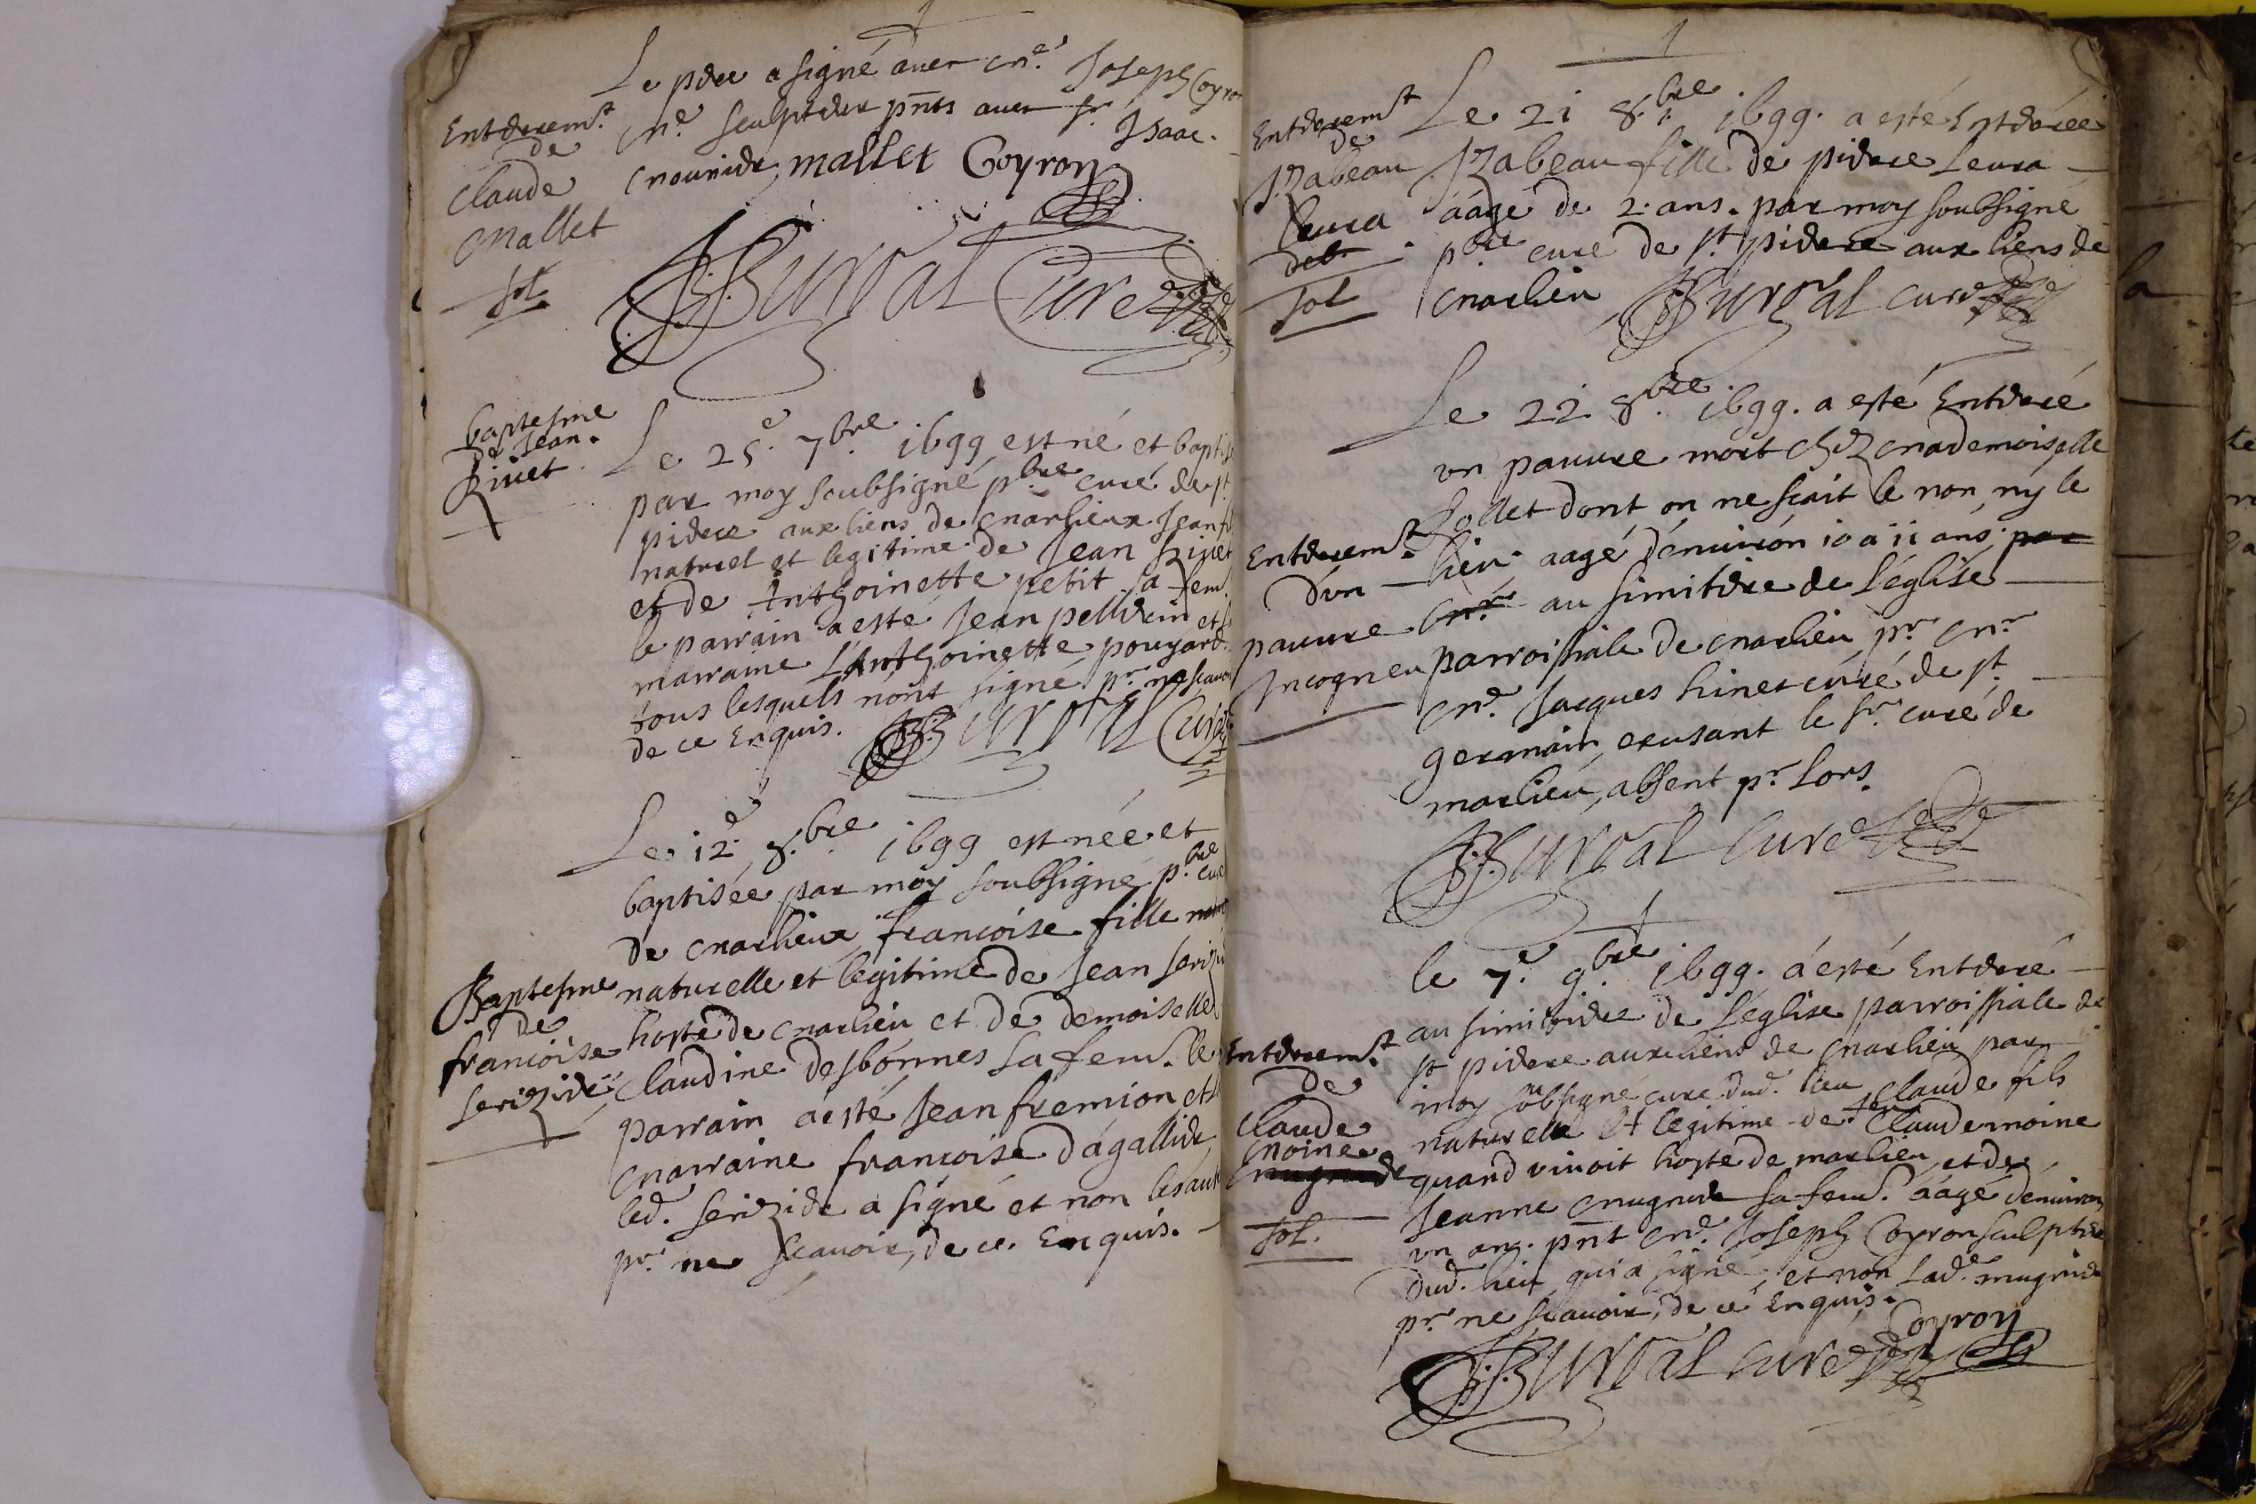 Le pere a signé avec Me. Joseph Coyron
Enterremt.
de
Claude
Mallet
sol
Me sculpteur pnts avec sr. Isaac
mounier, mallet Coyron
JBurval Curé
baptesme
de Jean
Rivet
Le 25e. 7bre. 1699 est né et baptisé
par moy soubsigné pbre curé de st.
pierre aux liens de marlieux Jean fils
naturel et legitime de Jean Rivet
et de Anthoinette petit sa fem.
le parrain a esté Jean pellerin et sa
marraine L'Anthoinette pouyard
tous lesquels n'ont signé pr. ne scavoir
de ce Enquis. JBurval Curé
Le 12e. 8.bre 1699 est née et
baptisée par moy soubsigné pbre curé
de marlieux francoise fille
Baptesme
de
francoise
Serizier
naturelle et legitime de Jean Serizier
hoste de marlieu et de demoiselle
Claudine desbonnes sa fem. le
parrain a esté Jean fremion et sa
marraine francoise dagallier
led. Serizier a signé et non les autres
pr. ne scavoir, de ce Enquis.
Enterremt
de
Izabeau
Leura
sol
Le 21 8.bre 1699. a esté Enterrée
Izabeau fille de pierre Leura
aagé de 2. ans. par moy soubsigné
pbre curé de st pierre aux liens de
marlieu JBurval curé
Le 22 8bre 1699. a esté Enterré
un pauvre mort chez mademoiselle
Follet dont on ne scait le nom ny le
Enterremt.
d'un
pauvre
Incogneu
lieu aagé denviron 10 a 11 ans par
Mr au simitiere de l'église
parroissiale de marlieu, pr. Mr
Me. Jacques hinet curé de st.
germain, excusant le sr. curé de
marlieu, absent pr. lors.
JBurval Curé
le 7e. 9bre 1699. a esté Enterré
au simitiere de l'église parroissiale de
Enterremt
de
Claude
Moine
sol.
st pierre aux liens de marlieu par
moy soubsigné curé dud. lieu Claude fils
naturelle et legitime de feu Claude moine
quand vivoit hoste de marlieu, et de
Jeanne mugnier sa fem. aagé denviron
un an. pnt Me. Joseph Coyron sculpteur
dud. lieu qui a signé, et non lade. mugnier
pr. ne scavoir, de ce Enquis.
Coyron
JBurval curé